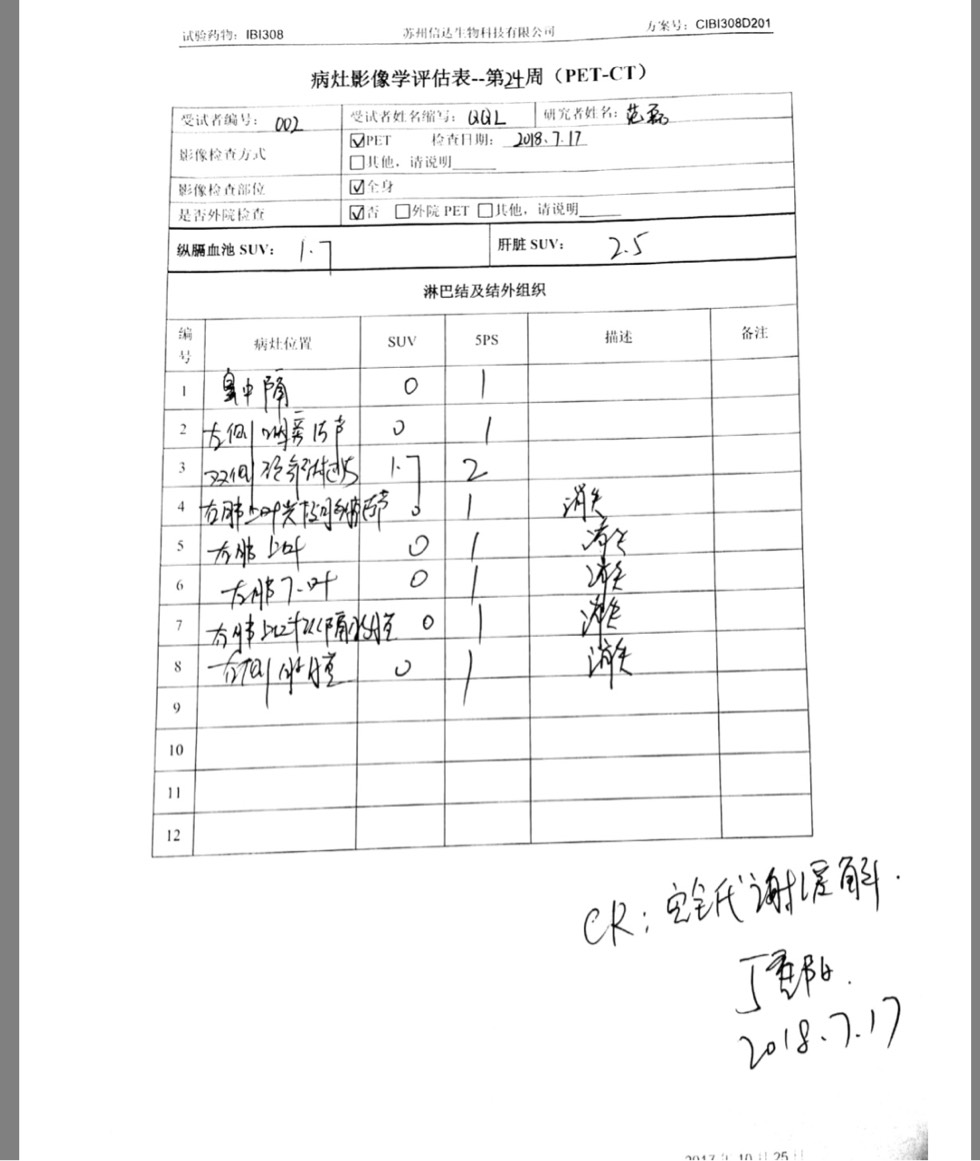 试验药物：IBI308 苏州信达生物科技有限公司 方案号：CIBI308D201
病灶影像学评估表--第24周（PET-CT）
受试者编号： 002 受试者姓名缩写：QQL 研究者姓名：范磊
影像检查方式 ☑PET 检查日期： 2018.7.17
☐其他，请说明______
影像检查部位 ☑全身
是否外院检查 ☑否 ☐外院 PET ☐其他，请说明______
纵膈血池 SUV： 1.7 肝脏 SUV： 2.5
淋巴结及结外组织
编号 病灶位置 SUV 5PS 描述 备注
1 鼻中隔 0 1
2 左侧 0 1
3 双侧 1.7 2
4 0 1 消失
5 右肺上叶 0 1 消失
6 左肺下叶 0 1 消失
7 0 1 消失
8 0 1 消失
9
10
11
12
CR：完全代谢缓解.
2018.7.17